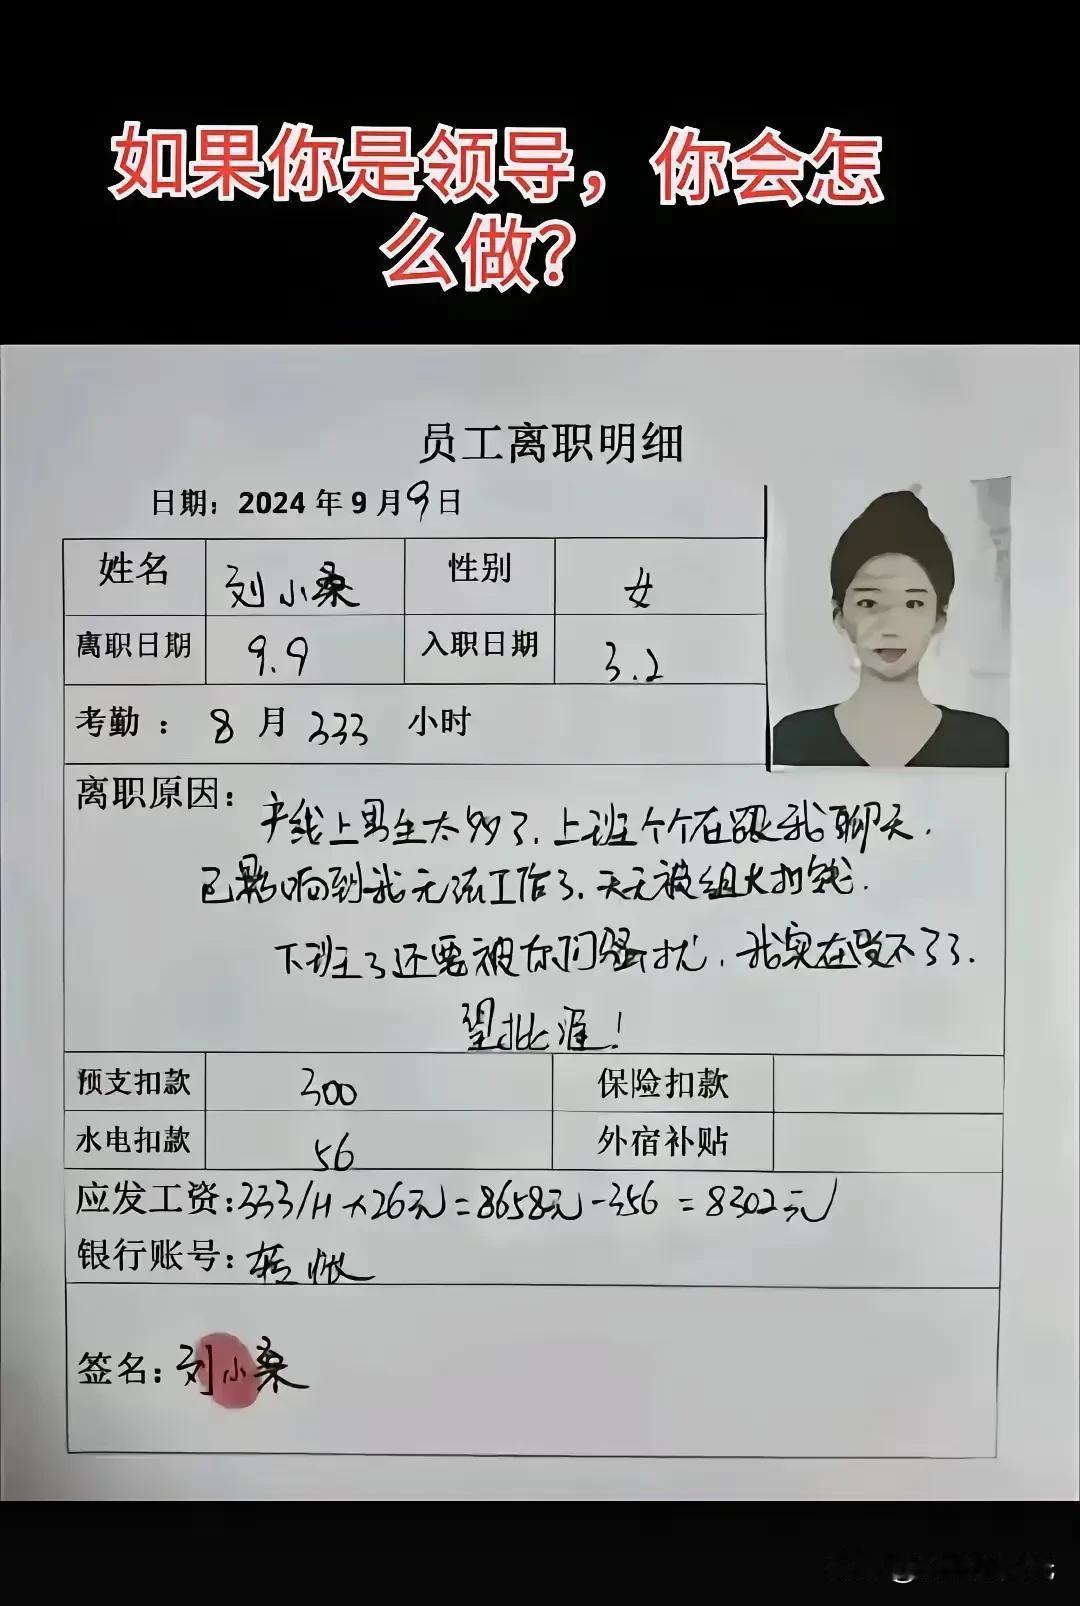 如果你是领导，你会怎
么做？
员工离职明细
日期：2024 年 9 月 9 日
姓名 刘小桑 性别 女
离职日期 9.9 入职日期 3.2
考勤 ： 8 月 333 小时
离职原因：产线上男生太多了，上班个个在跟我聊天，
已影响到我无法工作了，天天被组长扣钱．
下班了还要被你们骚扰，我实在受不了了．
望批准！
预支扣款 300 保险扣款
水电扣款 56 外宿补贴
应发工资：333/H×26元=8658元-356=8302元
银行账号：转帐
签名：刘小桑